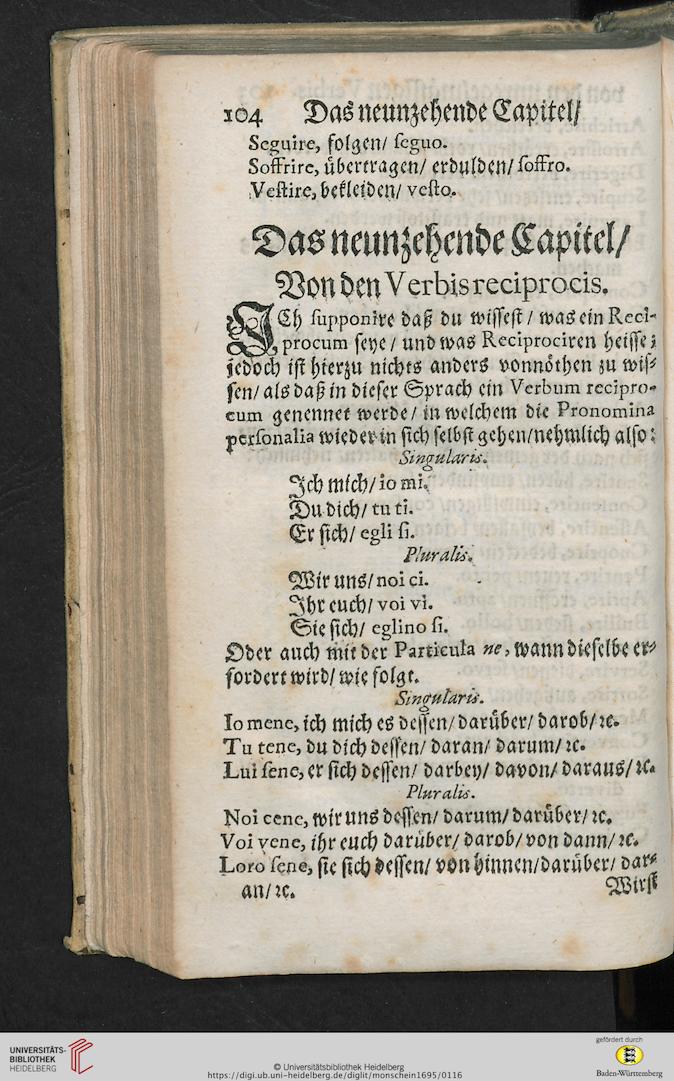 104 Das neunzehende Capitel/
Seguire, folgen/ seguo.
Soffrire, übertragen/ erdulden/ soffro.
Vestire, bekleiden/ vesto.
Das neunzehende Capitel/
Von den Verbis reciprocis.
JCh supponire daß du wissest / was ein Reci-
procum seye / und was Reciprociren heisse;
jedoch ist hierzu nichts anders vonnöthen zu wis-
sen/ als daß in dieser Sprach ein Verbum recipro-
cum genennet werde / in welchem die Pronomina
personalia wieder in sich selbst gehen/nehmlich also:
Singularis.
Jch mich/ io mi.
Du dich/ tu ti.
Er sich/ egli si.
Pluralis.
Wir uns/ noi ci.
Jhr euch/ voi vi.
Sie sich/ eglino si.
Oder auch mit der Particula ne, wann dieselbe er-
fordert wird/ wie folgt.
Singularis.
Io mene, ich mich es dessen/ darüber/ darob/ ꝛc.
Tu tene, du dich dessen/ daran/ darum/ ꝛc.
Lui sene, er sich dessen/ darbey/ davon/ daraus/ ꝛc.
Pluralis.
Noi cene, wir uns dessen/ darum/ darüber/ ꝛc.
Voi vene, ihr euch darüber/ darob/ von dann/ ꝛc.
Loro sene, sie sich dessen/ von hinnen/darüber/ dar-
an/ ꝛc. Wirst
UNIVERSITÄTS-
BIBLIOTHEK
HEIDELBERG
© Universitätsbibliothek Heidelberg
https://digi.ub.uni-heidelberg.de/diglit/monschein1695/0116
gefördert durch
Baden-Württemberg